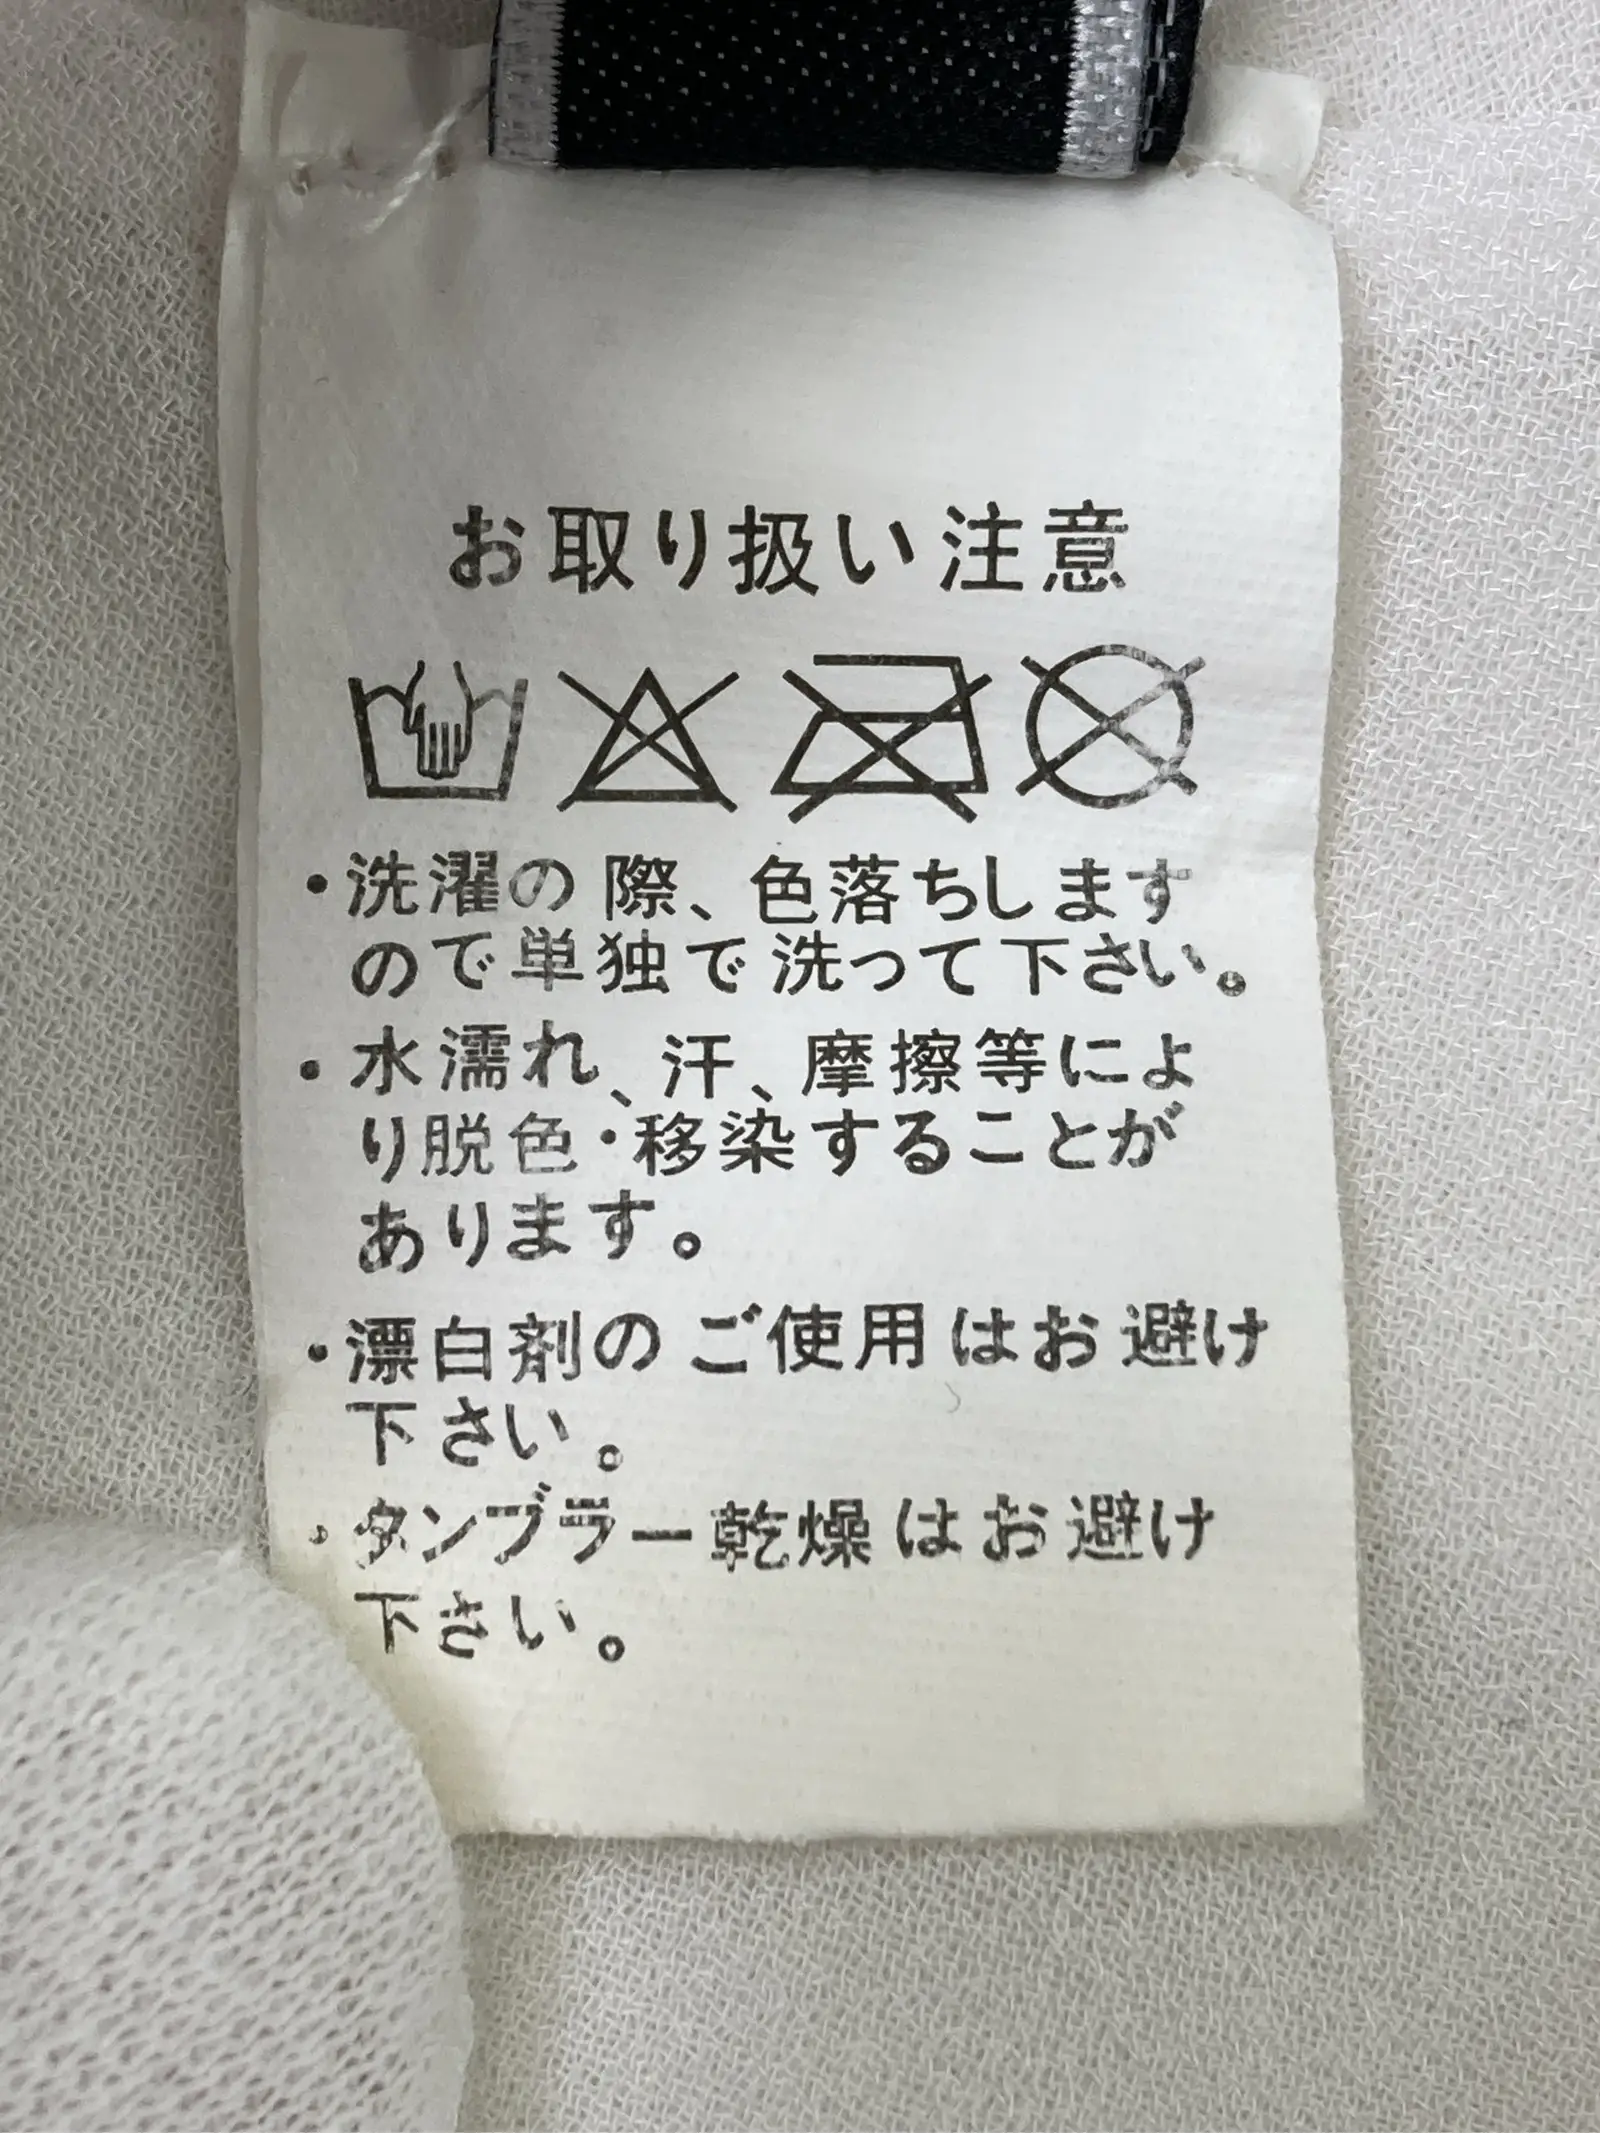 お取り扱い注意
・洗濯の際、色落ちします
ので単独で洗って下さい。
・水濡れ、汗、摩擦等によ
り脱色・移染することが
あります。
・漂白剤のご使用はお避け
下さい。
・タンブラー乾燥はお避け
下さい。